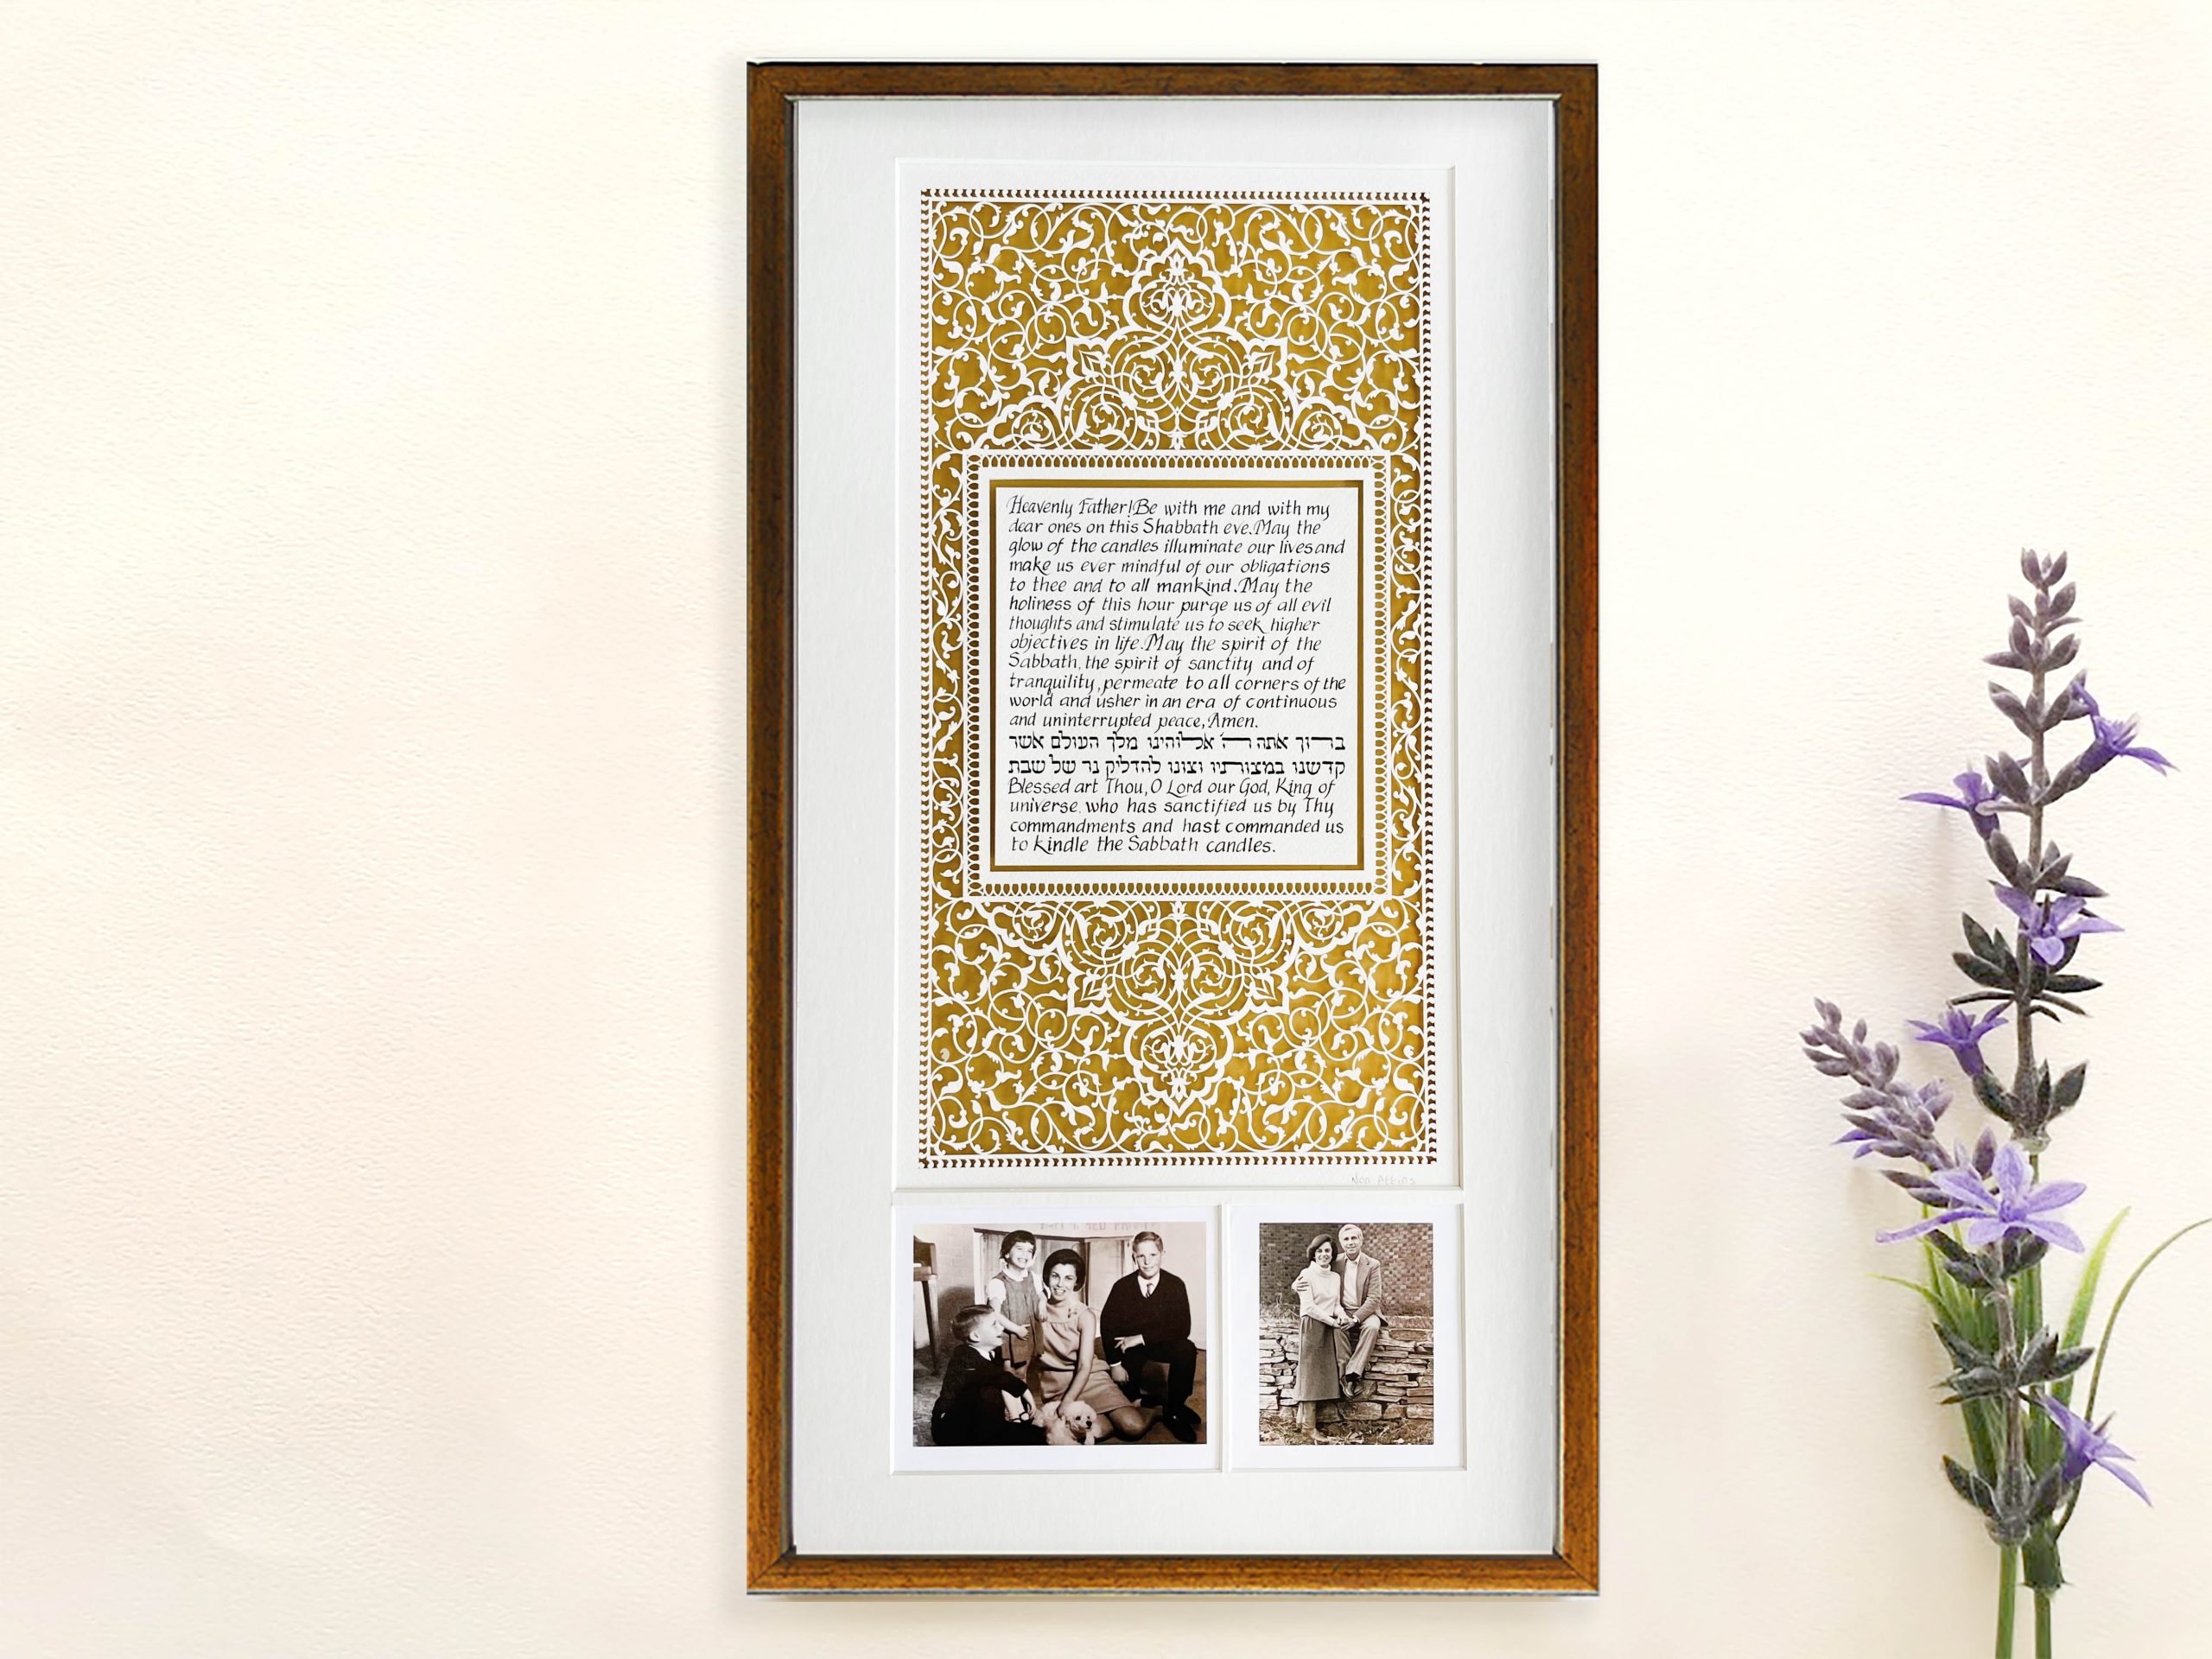 Heavenly Father! Be with me and with my
dear ones on this Shabbath eve. May the
glow of the candles illuminate our lives and
make us ever mindful of our obligations
to thee and to all mankind. May the
holiness of this hour purge us of all evil
thoughts and stimulate us to seek higher
objectives in life. May the spirit of the
Sabbath, the spirit of sanctity and of
tranquility, permeate to all corners of the
world and usher in an era of continuous
and uninterrupted peace, Amen.
ברוך אתה ה' אלוהינו מלך העולם אשר
קדשנו במצוותיו וצונו להדליק נר של שבת
Blessed art Thou, O Lord our God, King of
universe, who has sanctified us by Thy
commandments and hast commanded us
to kindle the Sabbath candles.